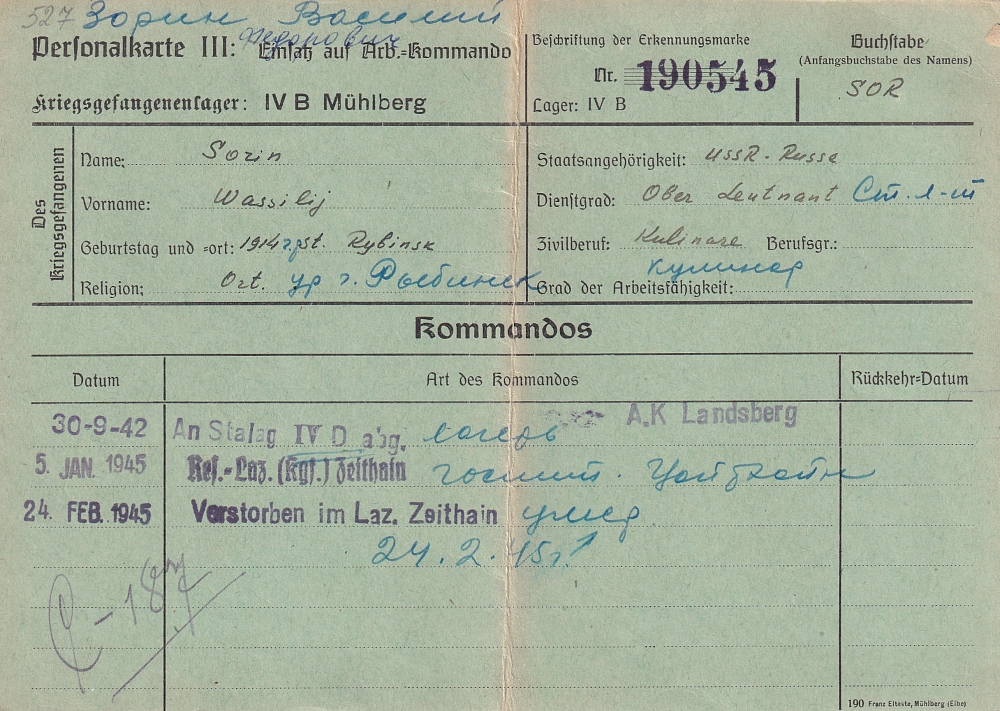 527 Зорин Василий
Федорович
Personalkarte III: Einsatz auf Arb.-Kommando
Beschriftung der Erkennungsmarke
Nr. 190545
Lager: IV B
Buchstabe
(Anfangsbuchstabe des Namens)
SOR
Kriegsgefangenenlager: IV B Mühlberg
Des Kriegsgefangenen
Name: Sorin
Vorname: Wassilij
Geburtstag und -ort: 1914 Rybinsk
Religion: Ort. ур г. Рыбинск
Staatsangehörigkeit: USSR - Russe
Dienstgrad: Ober Leutnant Ст. л-т
Zivilberuf: Kulinare Berufsgr.:
кулинар
Grad der Arbeitsfähigkeit:
Kommandos
Datum Art des Kommandos Rückkehr-Datum
A.K Landsberg
30-9-42 An Stalag IV D abg. лагерь
5. JAN. 1945 Res.-Laz. (Kgf.) Zeithain госпит. Цайтхайн
24. FEB. 1945 Verstorben im Laz. Zeithain умер
24.2.45г.
190 Franz Elteste, Mühlberg (Elbe)